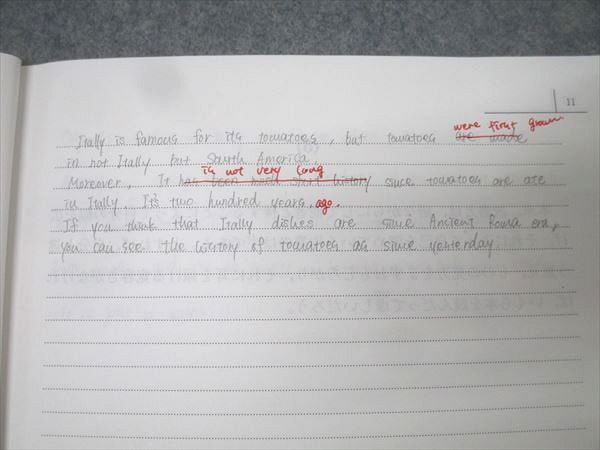 11
were first grown
Itally is famous for its tomatoes, but tomatoes are made
in not Itally but South America.
is not very long
Moreover, It has been much short history since tomatoes are ate
in Itally. It's two hundred years. ago.
If you think that Itally dishes are since Ancient Roma era,
you can see the history of tomatoes as since yesterday.